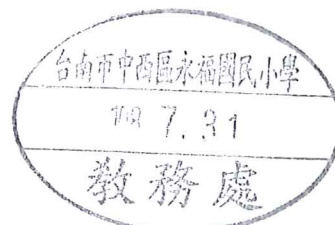 台南市中西區永福國民小學
7.31
教務處